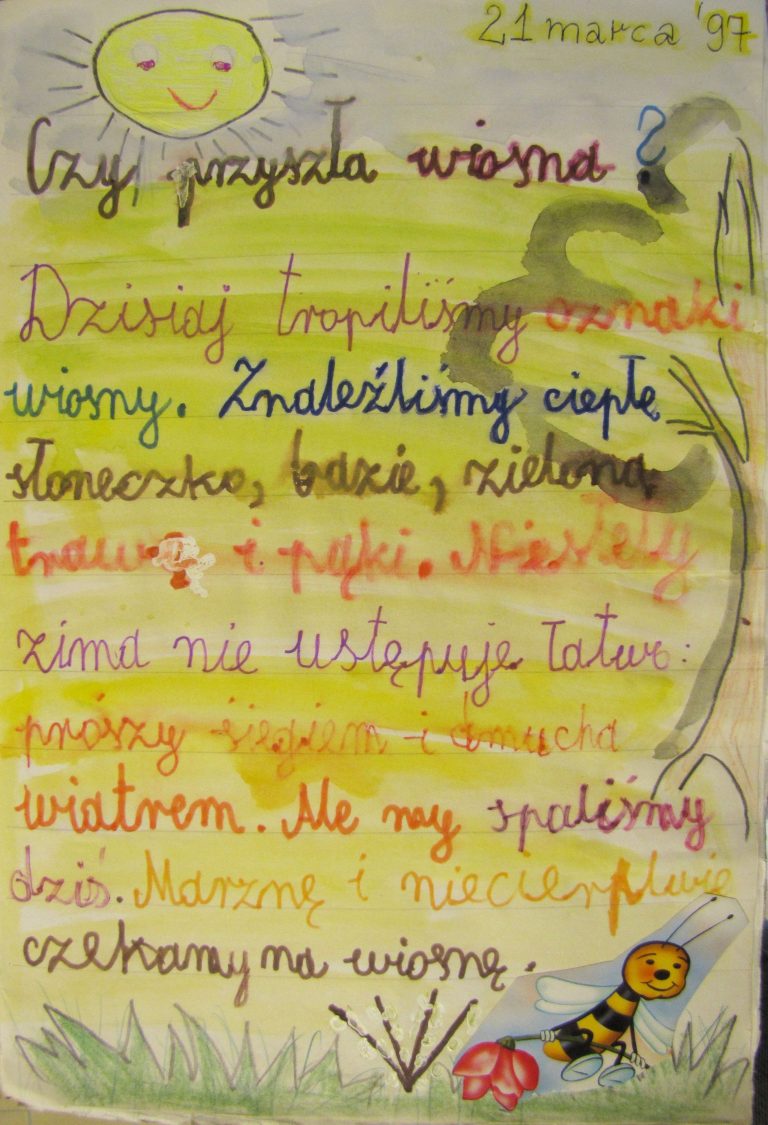 21 marca '97
Czy przyszła wiosna ?
Dzisiaj tropiliśmy oznaki
wiosny. Znaleźliśmy ciepłe
słoneczko, bazie, zieloną
trawę i pąki. Niestety
zima nie ustępuje łatwo:
prószy śniegiem i dmucha
wiatrem. Ale my spaliśmy
dziś. Marznę i niecierpliwie
czekamy na wiosnę.